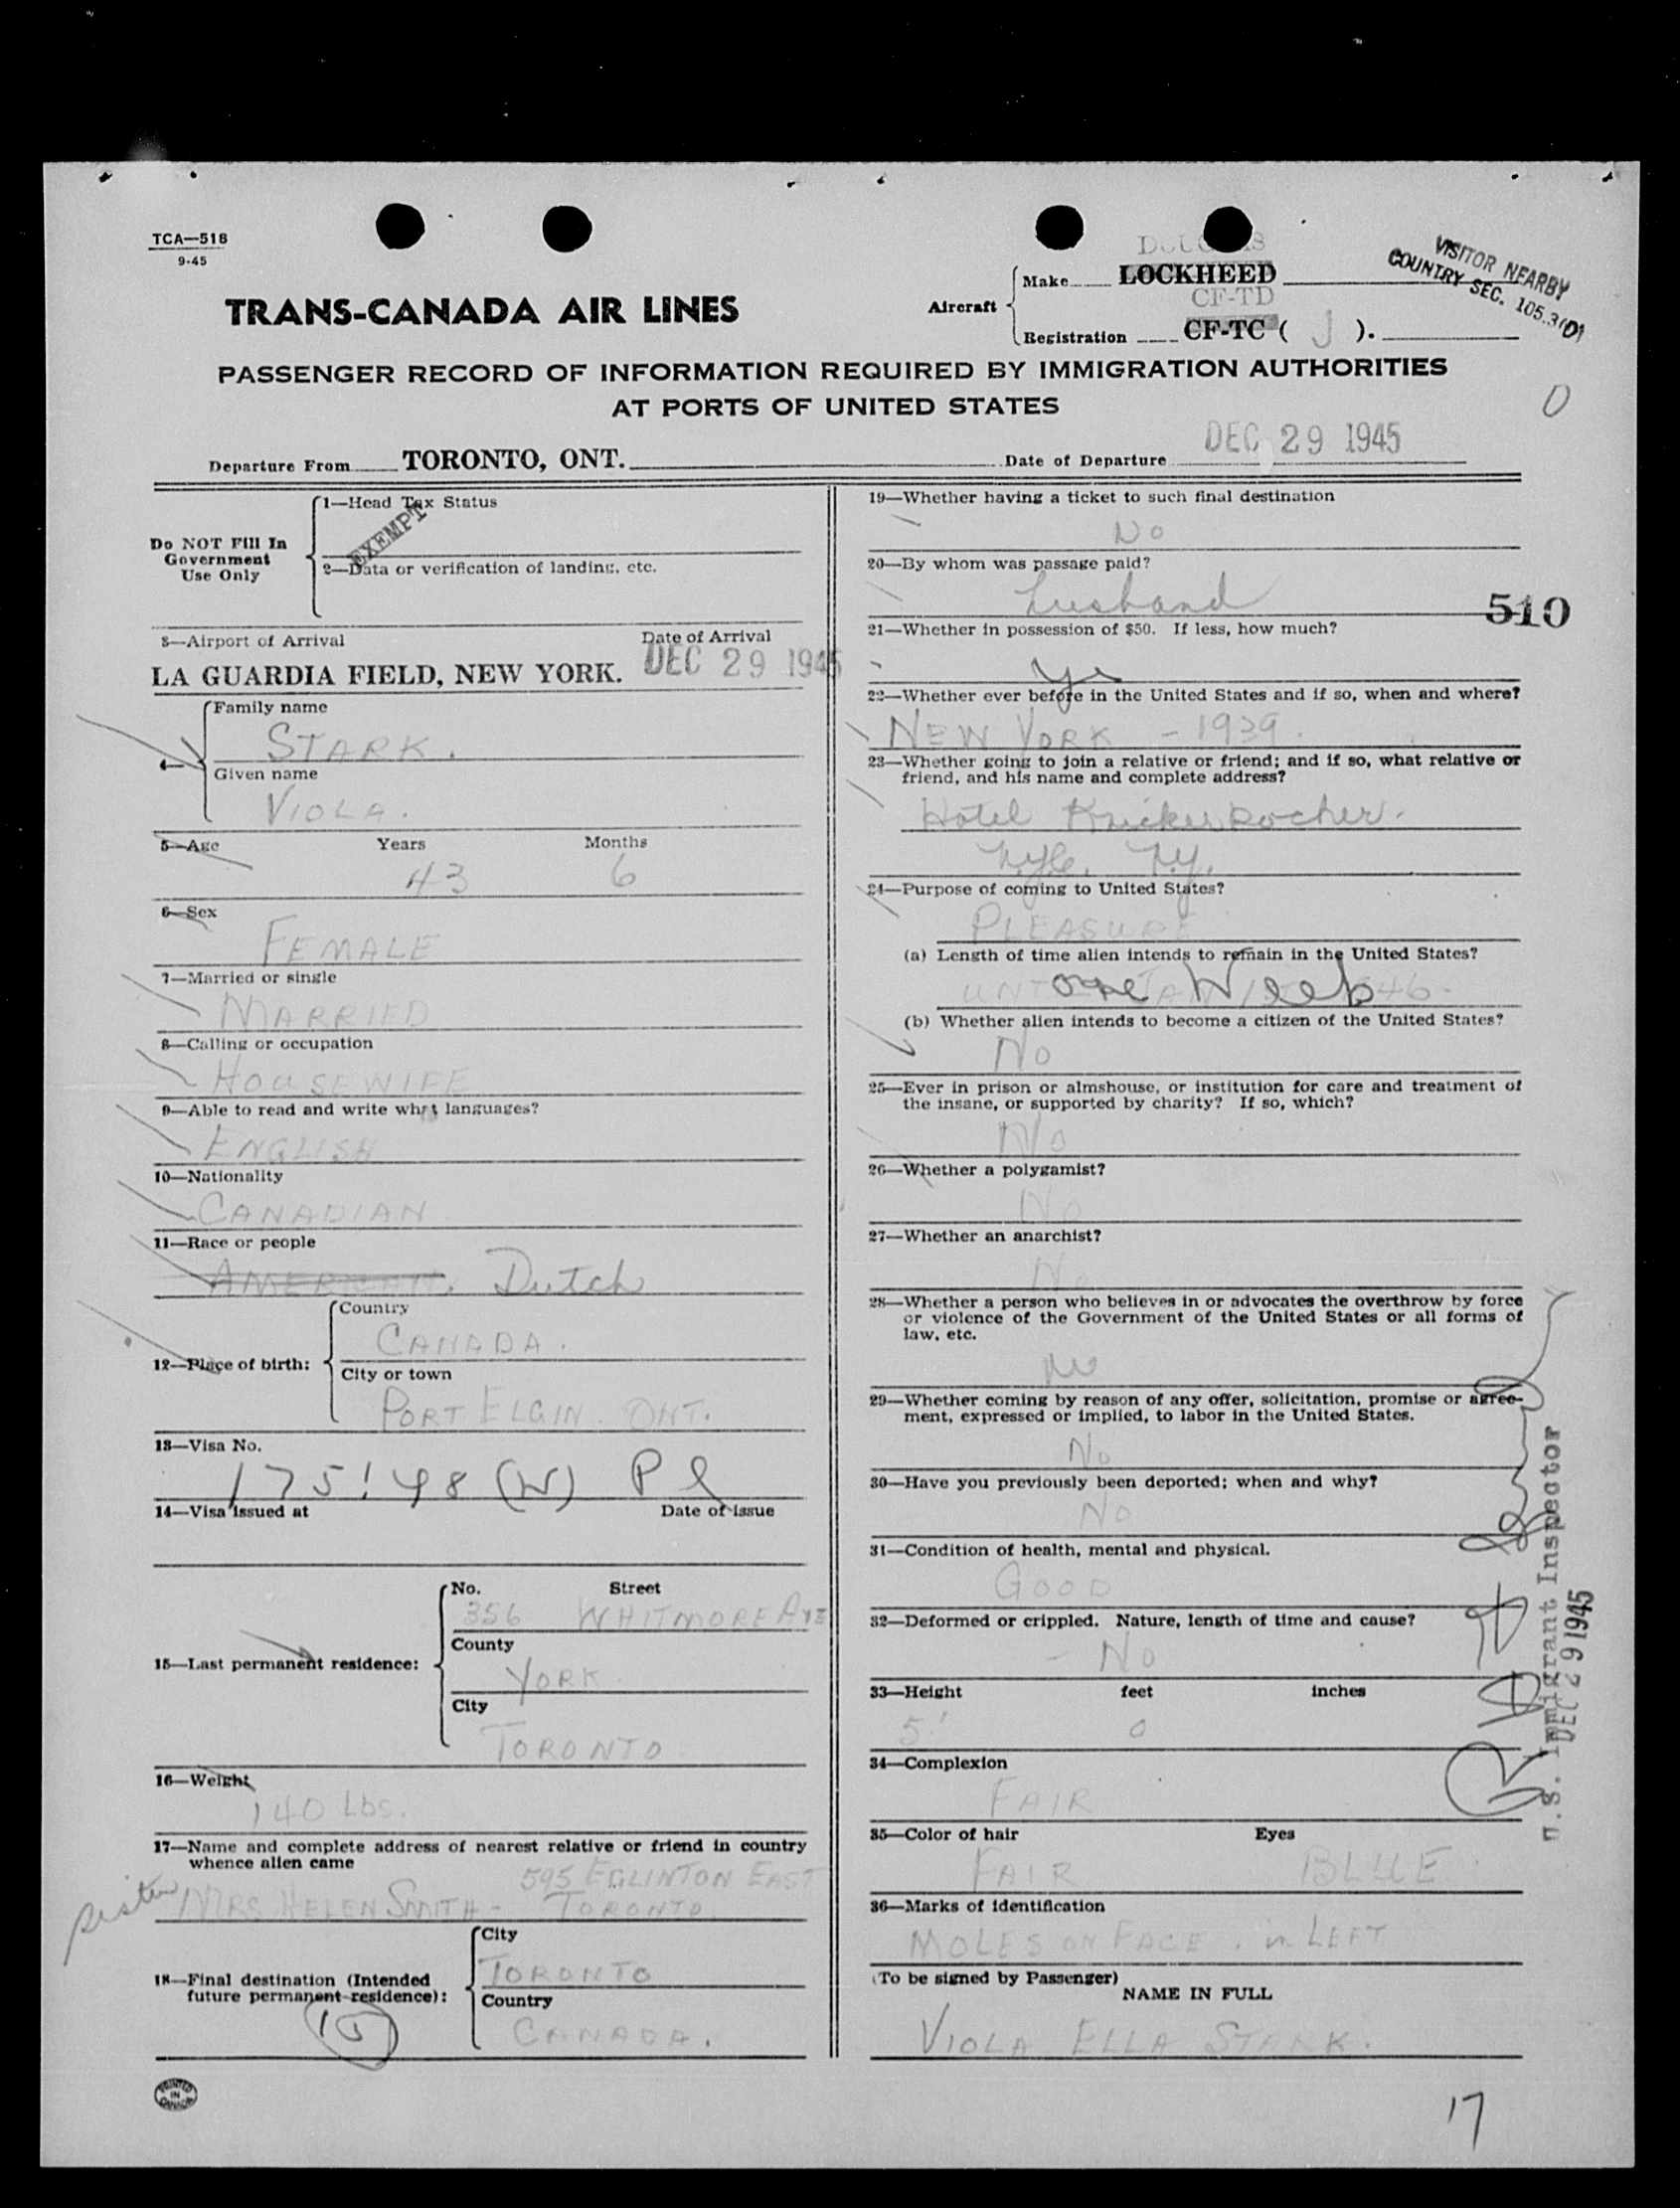 TCA—518
9-45
DOUGLAS
VISITOR NEARBY
COUNTRY SEC. 105.3(D)
TRANS-CANADA AIR LINES
Aircraft
Make LOCKHEED
CF-TD
Registration CF-TC ( J ).
PASSENGER RECORD OF INFORMATION REQUIRED BY IMMIGRATION AUTHORITIES
AT PORTS OF UNITED STATES
0
Departure From TORONTO, ONT. Date of Departure DEC 29 1945
Do NOT Fill In
Government
Use Only
1—Head Tax Status
EXEMPT
2—Data or verification of landing, etc.
3—Airport of Arrival Date of Arrival
LA GUARDIA FIELD, NEW YORK. DEC 29 1945
4—
Family name
STARK.
Given name
VIOLA.
5—Age Years Months
43 6
6—Sex
FEMALE
7—Married or single
MARRIED
8—Calling or occupation
HOUSEWIFE
9—Able to read and write what languages?
ENGLISH
10—Nationality
CANADIAN
11—Race or people
AMERICAN. Dutch
12—Place of birth:
Country
CANADA.
City or town
PORT ELGIN. ONT.
13—Visa No.
175! 48 (W) Pl
14—Visa issued at Date of issue
15—Last permanent residence:
No. Street
356 WHITMORE AVE
County
YORK
City
TORONTO
16—Weight
140 Lbs.
17—Name and complete address of nearest relative or friend in country
whence alien came
595 EGLINTON EAST
sister MRS HELEN SMITH - TORONTO
18—Final destination (Intended
future permanent residence):
City
TORONTO
Country
CANADA.
PRINTED
IN
CANADA
19—Whether having a ticket to such final destination
No
20—By whom was passage paid?
husband
510
21—Whether in possession of $50. If less, how much?
Yes
22—Whether ever before in the United States and if so, when and where?
NEW YORK - 1939.
23—Whether going to join a relative or friend; and if so, what relative or
friend, and his name and complete address?
Hotel Knickerbocker.
N.Y.
24—Purpose of coming to United States?
PLEASURE
(a) Length of time alien intends to remain in the United States?
one Week
(b) Whether alien intends to become a citizen of the United States?
No
25—Ever in prison or almshouse, or institution for care and treatment of
the insane, or supported by charity? If so, which?
No
26—Whether a polygamist?
No
27—Whether an anarchist?
No
28—Whether a person who believes in or advocates the overthrow by force
or violence of the Government of the United States or all forms of
law, etc.
No
29—Whether coming by reason of any offer, solicitation, promise or agree-
ment, expressed or implied, to labor in the United States.
No
30—Have you previously been deported; when and why?
No
31—Condition of health, mental and physical.
GOOD
32—Deformed or crippled. Nature, length of time and cause?
- No
33—Height feet inches
5' 0
34—Complexion
FAIR
35—Color of hair Eyes
FAIR BLUE.
36—Marks of identification
MOLES ON FACE. in LEFT
(To be signed by Passenger)
NAME IN FULL
VIOLA ELLA STARK.
U.S. Immigrant Inspector
DEC 29 1945
17